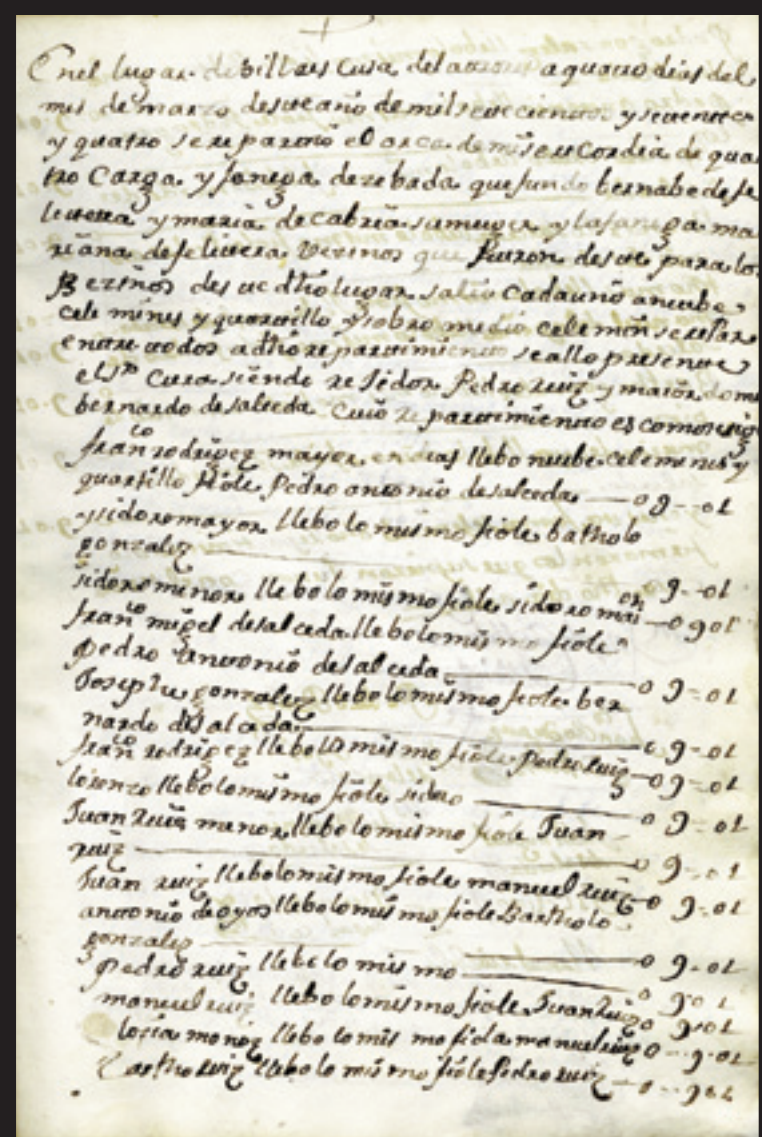 Enel lugar de billaescusa del a quatro dias del
mes de marzo desteaño de mil setecientos y setenta
y quatro se repartio el arca de misericordia de qua
tro Carga y fanega de zebada que fundo bernabe de se
y maria de cabria su muger y la fanega ma
riana de Vezinos que fueron deste para los
Bezinos deste dho lugar salio cadauno a nuebe
cele mines y quartillo y sobro medio celemin se repar
entre todos a dho repartimiento se allo presente
el sr Cura siendo rejidor Pedro ruiz y maiordomo
bernardo desalceda Cuio repartimiento es como sig
franco rodrigez mayor en dias llebo nuebe celemines y
quartillo fiole Pedro antonio desalceda — 0 9 - 01
ysidoro mayor llebo lo mismo fiole bartholo
gonzalez — 0 9 - 01
sidoro menor llebo lo mismo fiole sidoro maior — 0 9 01
fran migel desalceda llebo lo mismo fiole
Pedro Antonio desalceda — 0 9 - 01
Josephe gonzalez llebo lo mismo fiole ber
nardo dsalceda — 0 9 - 01
franco rodrigez llebo lo mismo fiole Pedro ruiz — 0 9 - 01
lorenzo llebo lo mismo fiole sidro — 0 9 - 01
Juan Ruiz menor llebo lo mismo fiole Juan
ruiz — 0 9 - 01
Juan ruiz llebo lo mismo fiole manuel ruiz — 0 9 - 01
antonio deoyos llebo lo mismo fiole Bartholo
gonzalez — 0 9 - 01
Pedro ruiz llebo lo mismo — 0 9 01
manuel ruiz llebo lo mismo fiole Juan Ruiz 0 9 - 01
lozia monoz llebo lo mismo fiola manuel ruiz 0 - 9 - 01
ruiz llebo lo mismo fiole Pedro ruiz — 0 - 9 01